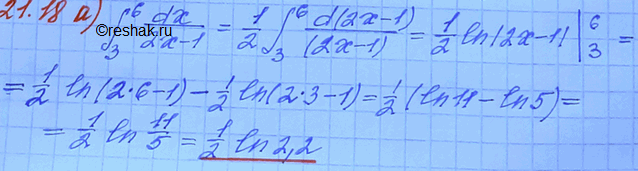 21.18 а) ∫₃⁶ dx/(2x-1) = 1/2 ∫₃⁶ d(2x-1)/(2x-1) = 1/2 ln|2x-1| |₃⁶ =
= 1/2 ln(2·6-1) - 1/2 ln(2·3-1) = 1/2 (ln11 - ln5) =
= 1/2 ln 11/5 = 1/2 ln2,2